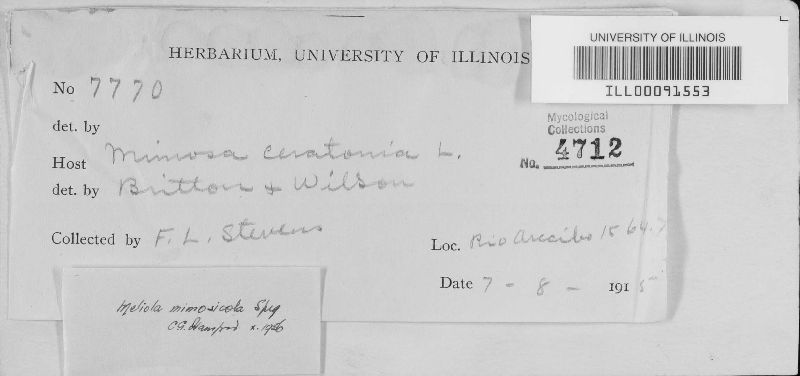 HERBARIUM, UNIVERSITY OF ILLINOIS
UNIVERSITY OF ILLINOIS
ILL00091553
No 7770
Mycological
Collections
No. 4712
det. by
Host Mimosa ceratonia L.
det. by Britton & Wilson
Collected by F. L. Stevens
Loc. Rio Arecibo
Date 7-8-1915
Meliola mimosicola Spig